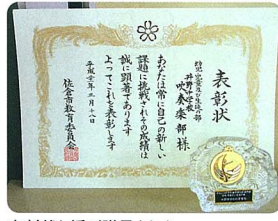 表彰状
特別児童及び生徒の部
井野中学校
吹奏楽部 様
あなたは常に自己の新しい
課題に挑戦されその成績は
誠に顕著であります
よってこれを表彰します
平成 年三月十八日
佐倉市教育委員会